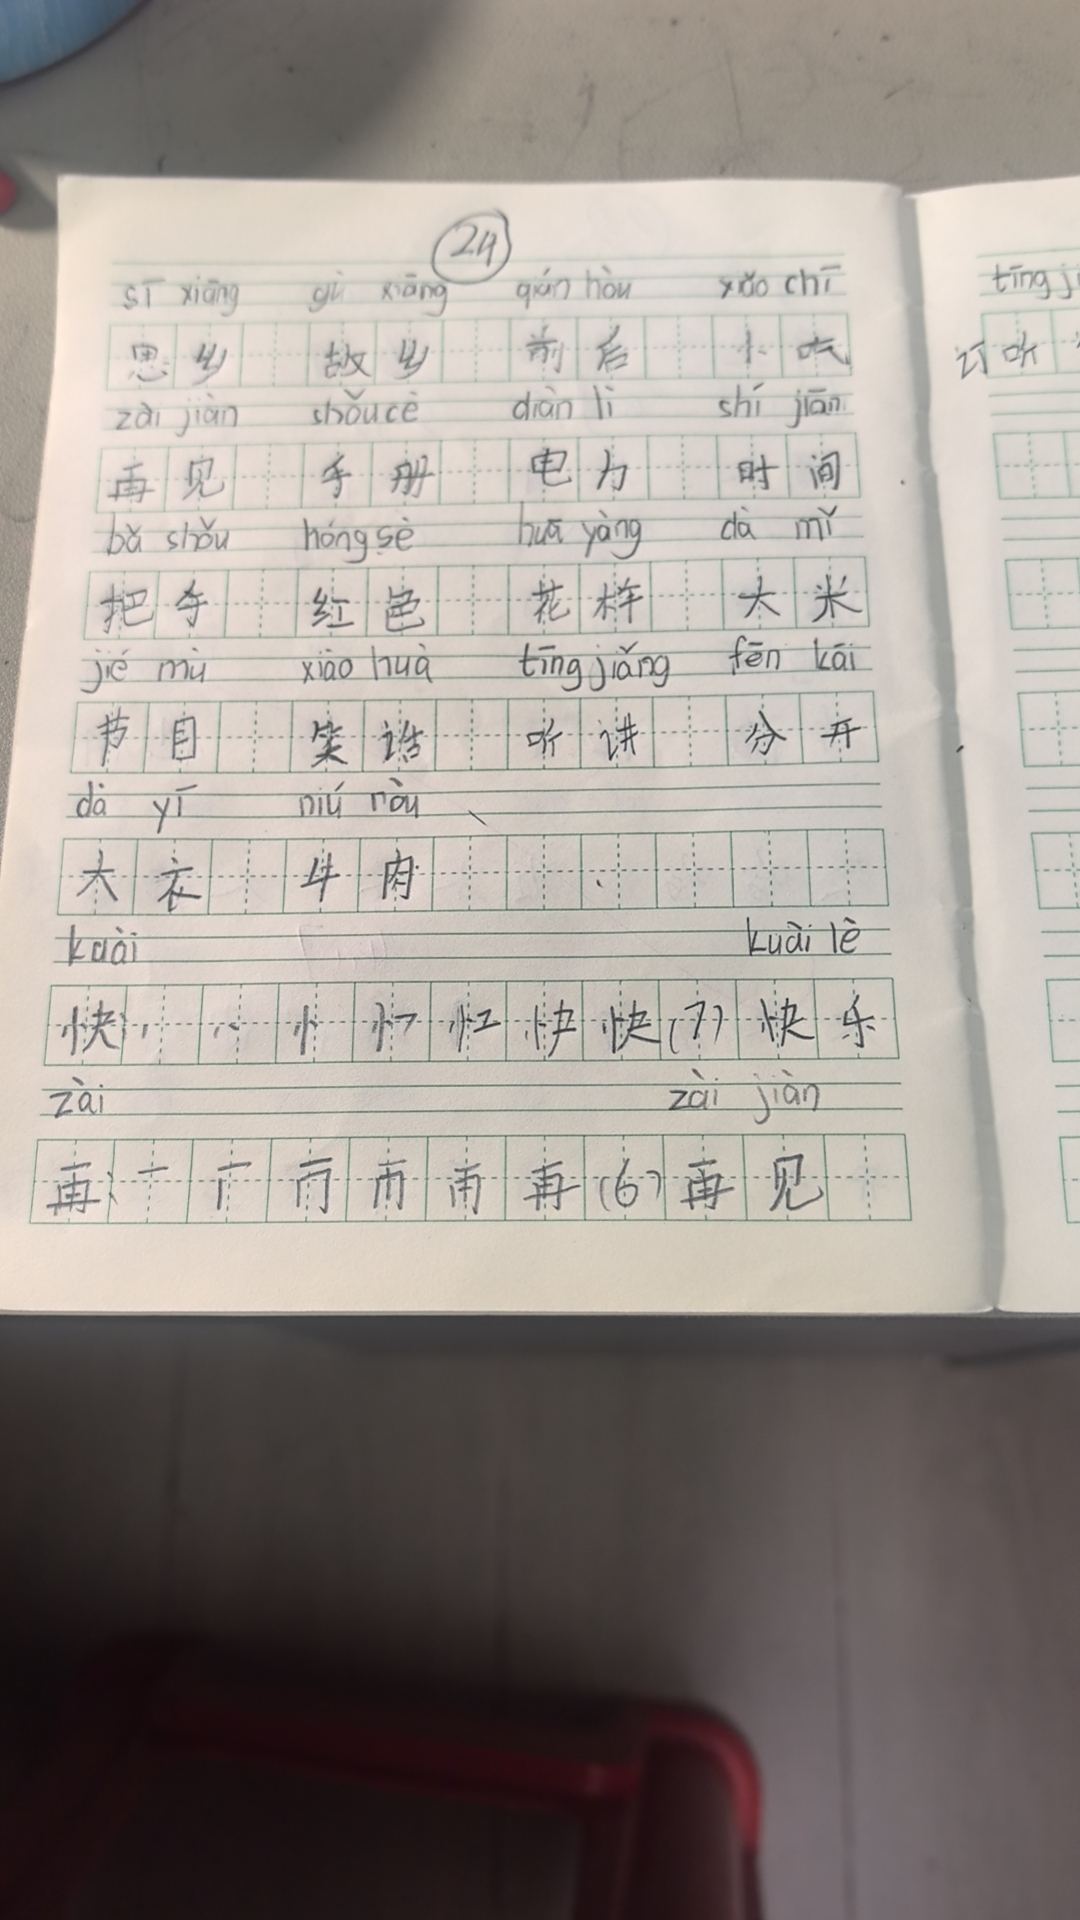 24
sī xiāng gù xiāng qián hòu xiǎo chī
思乡 故乡 前后 小吃
zài jiàn shǒu cè diàn lì shí jiān
再见 手册 电力 时间
bǎ shǒu hóng sè huā yàng dà mǐ
把手 红色 花样 大米
jié mù xiào huà tīng jiǎng fēn kāi
节目 笑话 听讲 分开
dà yī niú ròu
大衣 牛肉
kuài kuài lè
快 快 (7) 快乐
zài zài jiàn
再 再 (6) 再见
tīng
订 听